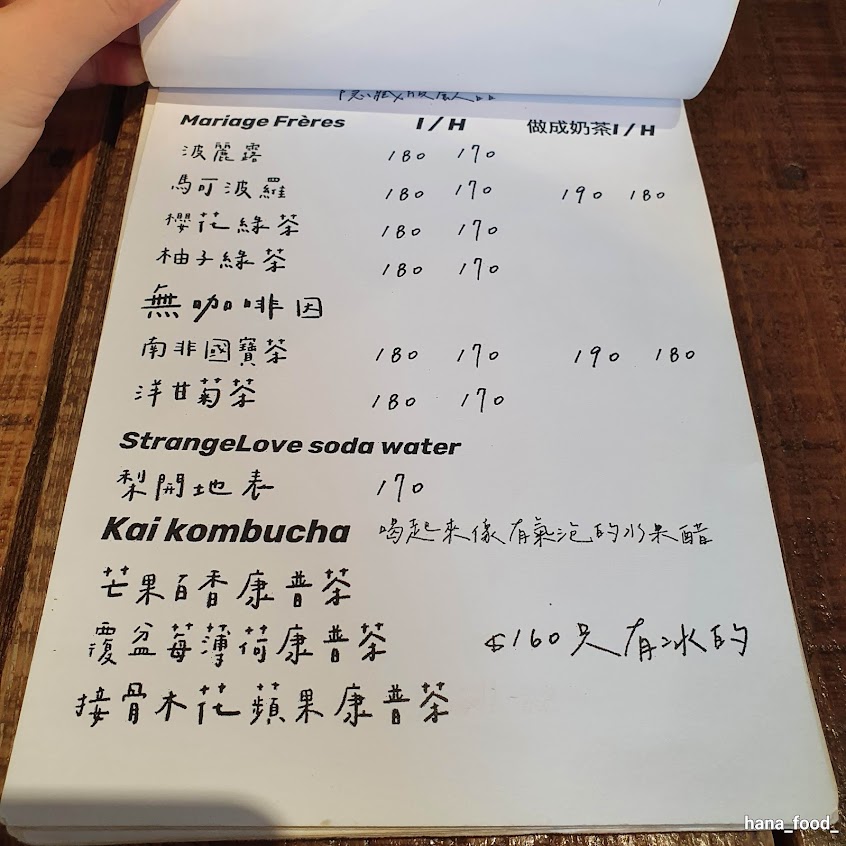 Mariage Frères I / H 做成奶茶 I / H
波麗露 180 170
馬可波羅 180 170 190 180
櫻花綠茶 180 170
柚子綠茶 180 170
無咖啡因
南非國寶茶 180 170 190 180
洋甘菊茶 180 170
StrangeLove soda water
梨開地表 170
Kai kombucha 喝起來像有氣泡的水果醋
芒果百香康普茶
覆盆莓薄荷康普茶 $160 只有冰的
接骨木花蘋果康普茶
hana_food_